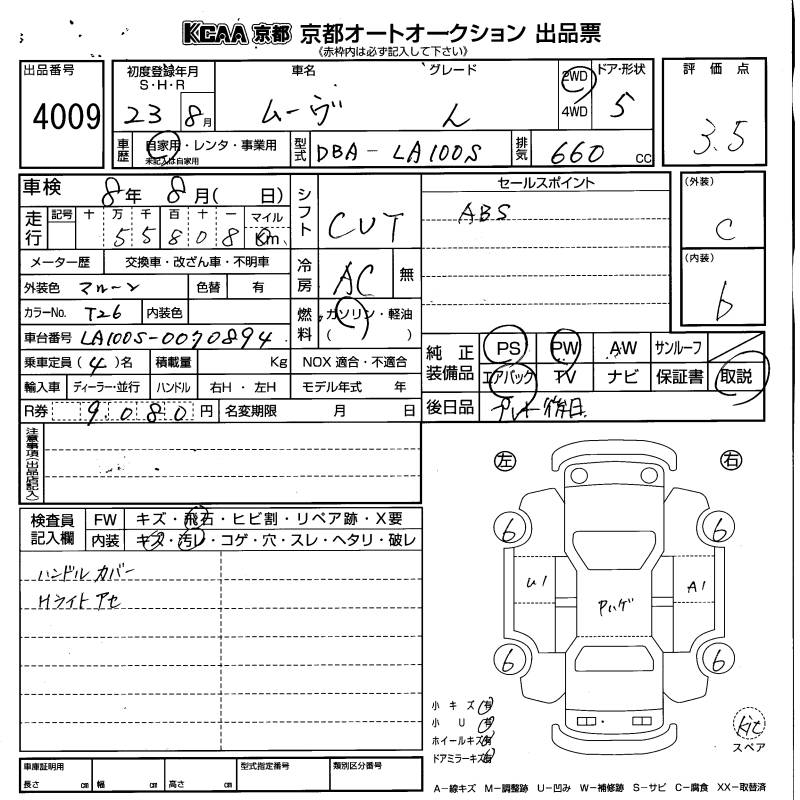 KCAA 京都 京都オートオークション 出品票
《赤枠内は必ず記入して下さい》
出品番号
4009
初度登録年月
S・H・R
23 8月
車名
ムーヴ
グレード
L
2WD
4WD
ドア・形状
5
評価点
3.5
車歴
自家用・レンタ・事業用
未記入は自家用
型式
DBA-LA100S
排気
660 cc
車検
8年 8月( 日)
走行
記号 十 万 千 百 十 一 マイル
5 5 8 0 8 Km
シフト
CVT
セールスポイント
ABS
(外装)
C
(内装)
b
メーター歴 交換車・改ざん車・不明車
外装色 マルーン 色替 有
冷房
AC 無
カラーNo. T26 内装色
燃料
ガソリン・軽油
( )
車台番号 LA100S-0070894
純正装備品
PS PW AW サンルーフ
エアバック TV ナビ 保証書 取説
乗車定員 (4)名 積載量 Kg NOX 適合・不適合
輸入車 ディーラー・並行 ハンドル 右H・左H モデル年式 年
R券 9,080円 名変期限 月 日
後日品
後日
注意事項(出品店記入)
左
右
検査員記入欄
FW キズ・飛石・ヒビ割・リペア跡・X要
内装 キズ・汚レ・コゲ・穴・スレ・ヘタリ・破レ
ハンドル カバー
Hライト アセ
6 6
U1 Pハゲ A1
6 6
小キズ 有
小 U 有
ホイールキズ 有
ドアミラーキズ 有
Kit
スペア
車庫証明用
長さ cm 幅 cm 高さ cm
型式指定番号
類別区分番号
A-線キズ M-調整跡 U-凹み W-補修跡 S-サビ C-腐食 XX-取替済